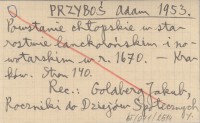 PRZYBOŚ Adam 1953.
Powstanie chłopskie w sta-
rostwie lanckorońskim i no-
wotarskim w r. 1670. — Kra-
ków. Stron 140.
Rec.: Goldberg Jakub,
Roczniki do Dziejów Społecznych